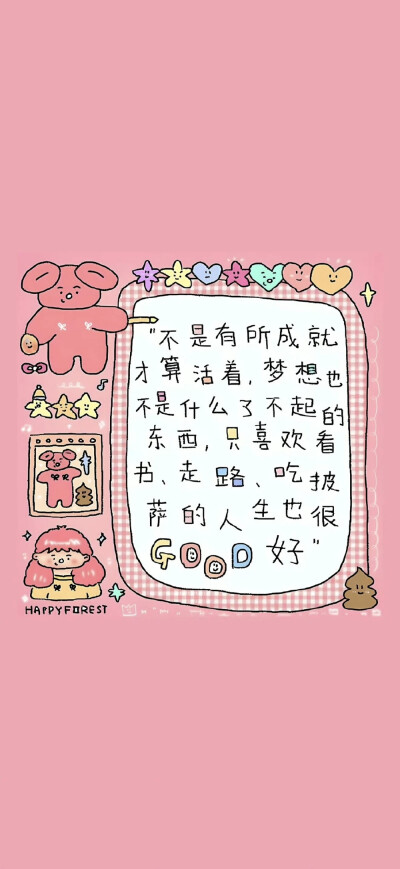 "不是有所成就
才算活着,梦想也
不是什么了不起的
东西,只喜欢看
书、走路、吃披
萨的人生也很
GOOD 好"
HAPPYFOREST